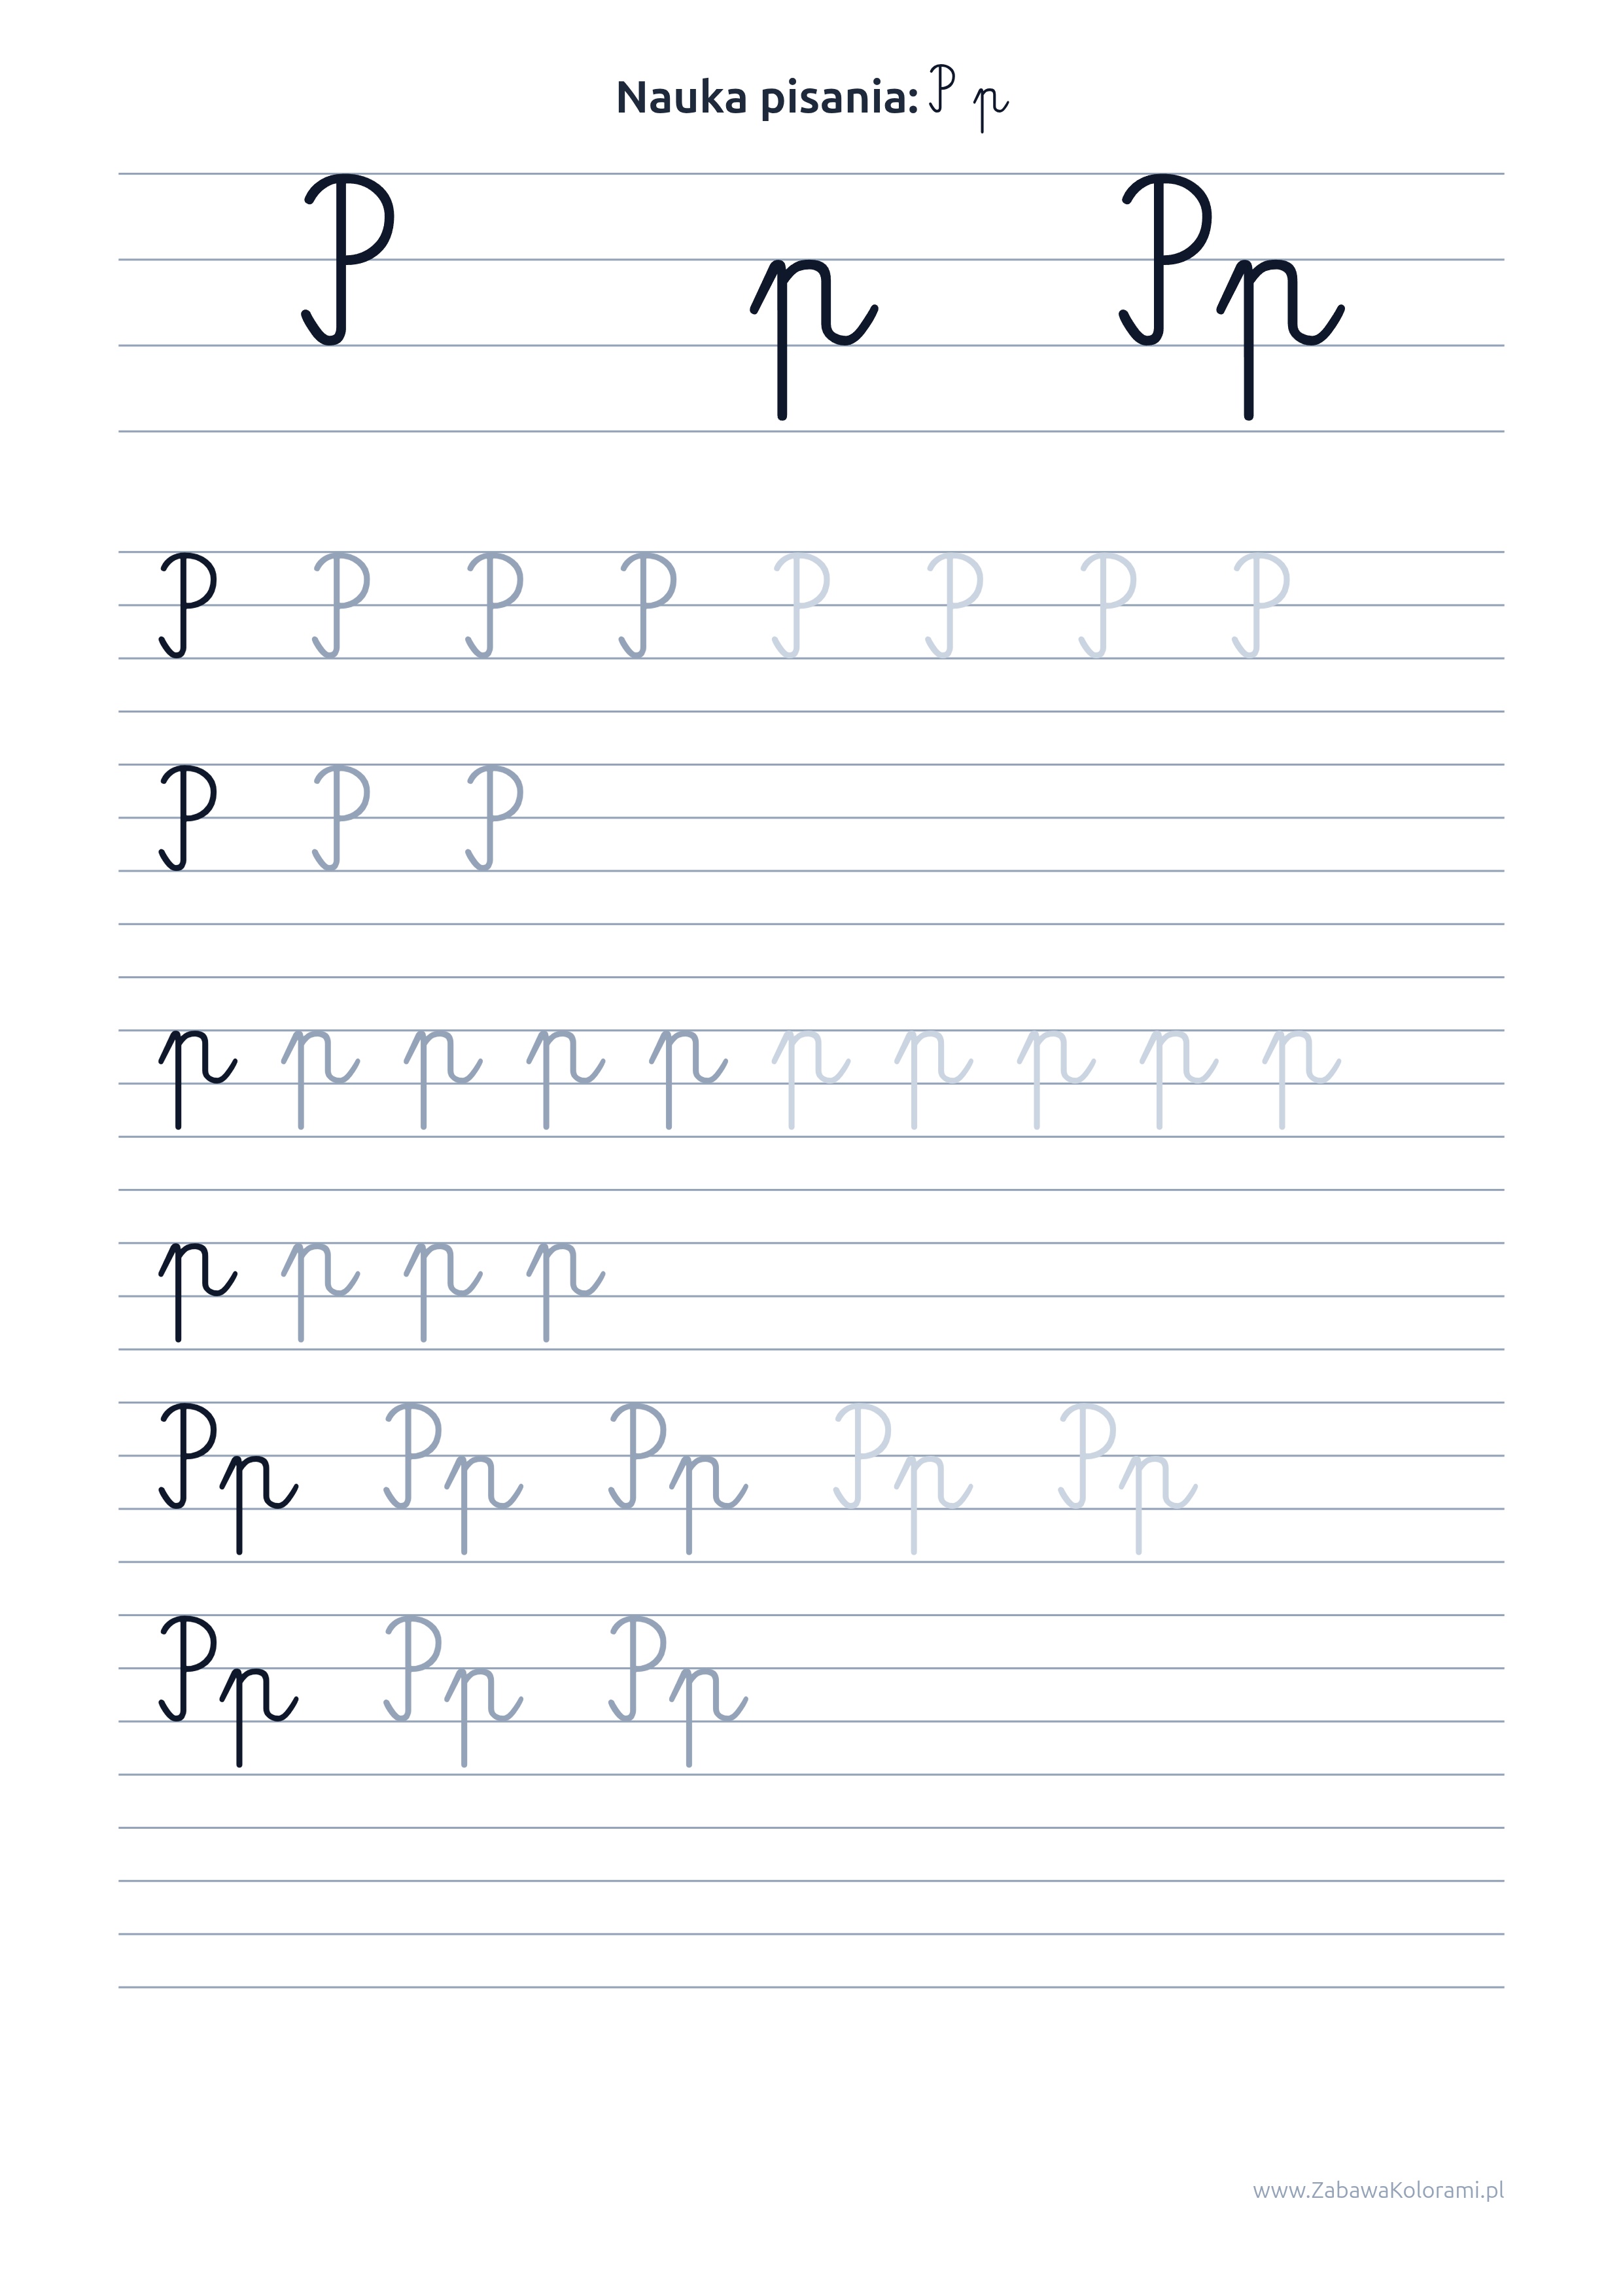 Nauka pisania: P p
P p Pp
P P P P P P P P
P P P
p p p p p p p p p p
p p p p
Pp Pp Pp Pp Pp
Pp Pp Pp
www.ZabawaKolorami.pl